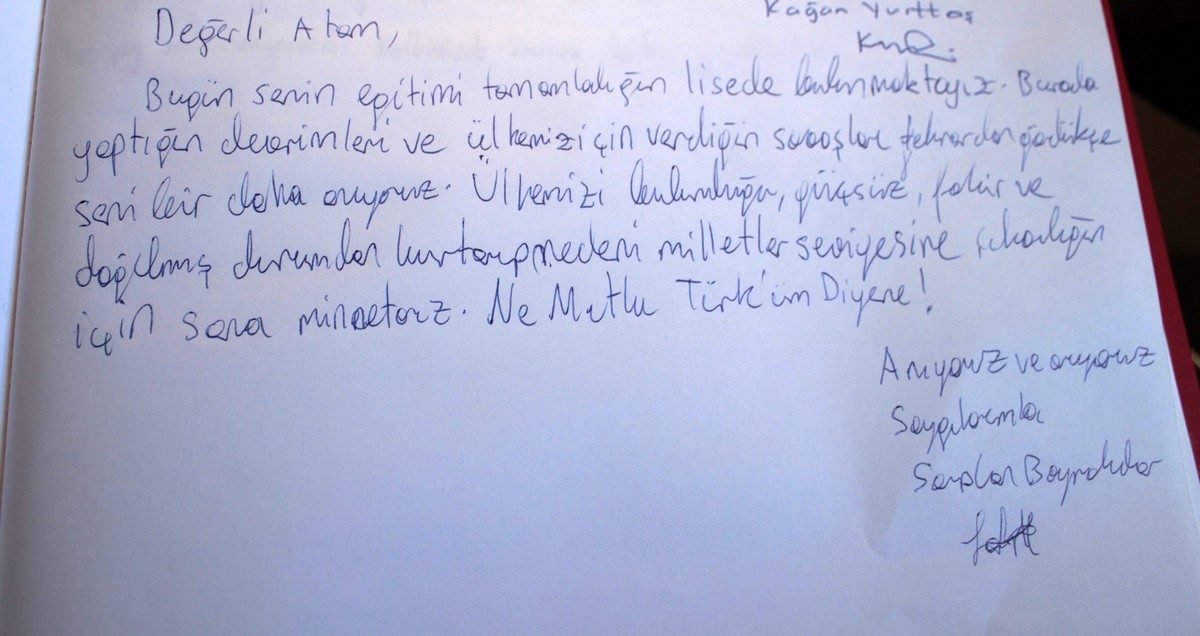 Kağan Yurttaş
Değerli Atam,
Bugün senin eğitimi tamamladığın lisede bulunmaktayız. Burada
yaptığın devrimleri ve ülkemiz için verdiğin savaşları tekrardan gördükçe
seni bir daha anıyoruz. Ülkemizi bulunduğu, güçsüz, fakir ve
dağılmış durumdan kurtarıp medeni milletler seviyesine çıkardığın
için sana minnettarız. Ne Mutlu Türk'üm Diyene!
Anıyoruz ve arıyoruz
Saygılarımla
Bayraktar